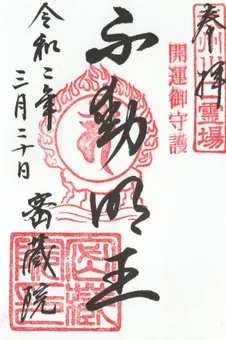 奉拝
霊場
開運御守護
不動明王
令和二年
三月二十日
密蔵院